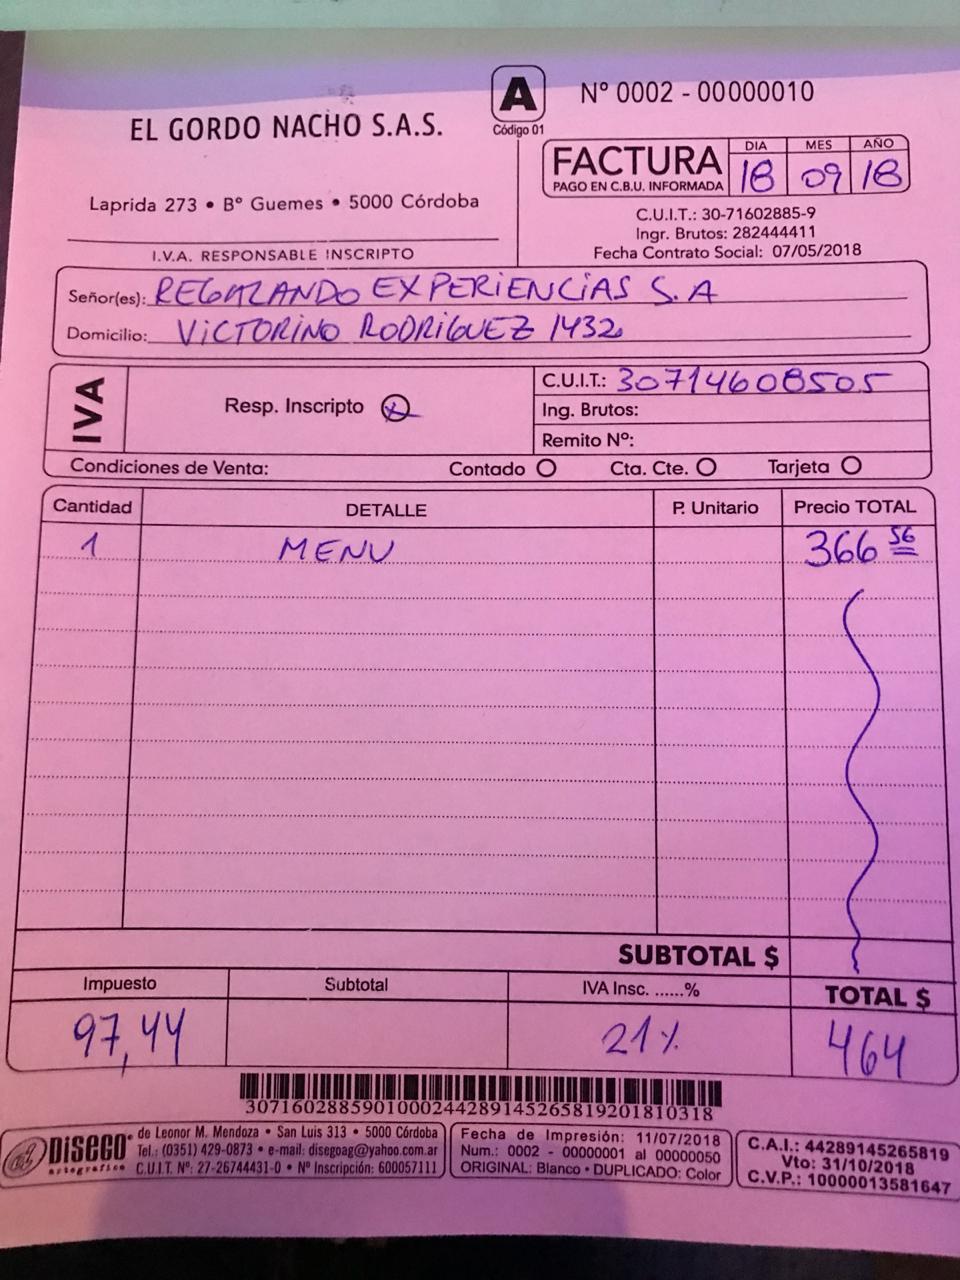 A
Código 01
N° 0002 - 00000010
EL GORDO NACHO S.A.S.
FACTURA
PAGO EN C.B.U. INFORMADA
DIA MES AÑO
18 09 18
Laprida 273 • B° Guemes • 5000 Córdoba
C.U.I.T.: 30-71602885-9
Ingr. Brutos: 282444411
Fecha Contrato Social: 07/05/2018
I.V.A. RESPONSABLE INSCRIPTO
Señor(es): REGALANDO EXPERIENCIAS S.A
Domicilio: VICTORINO RODRIGUEZ 1432
IVA
Resp. Inscripto
C.U.I.T.: 30714608505
Ing. Brutos:
Remito N°:
Condiciones de Venta: Contado Cta. Cte. Tarjeta
Cantidad DETALLE P. Unitario Precio TOTAL
1 MENU 366 56
SUBTOTAL $
Impuesto Subtotal IVA Insc. ......% TOTAL $
97,44 21% 464
307160288590100024428914526581920181031​8
DISEGO artografico
de Leonor M. Mendoza • San Luis 313 • 5000 Córdoba
Tel.: (0351) 429-0873 • e-mail: disegoag@yahoo.com.ar
C.U.I.T. N°: 27-26744431-0 • N° Inscripción: 600057111
Fecha de Impresión: 11/07/2018
Num.: 0002 - 00000001 al 00000050
ORIGINAL: Blanco • DUPLICADO: Color
C.A.I.: 44289145265819
Vto: 31/10/2018
C.V.P.: 10000013581647